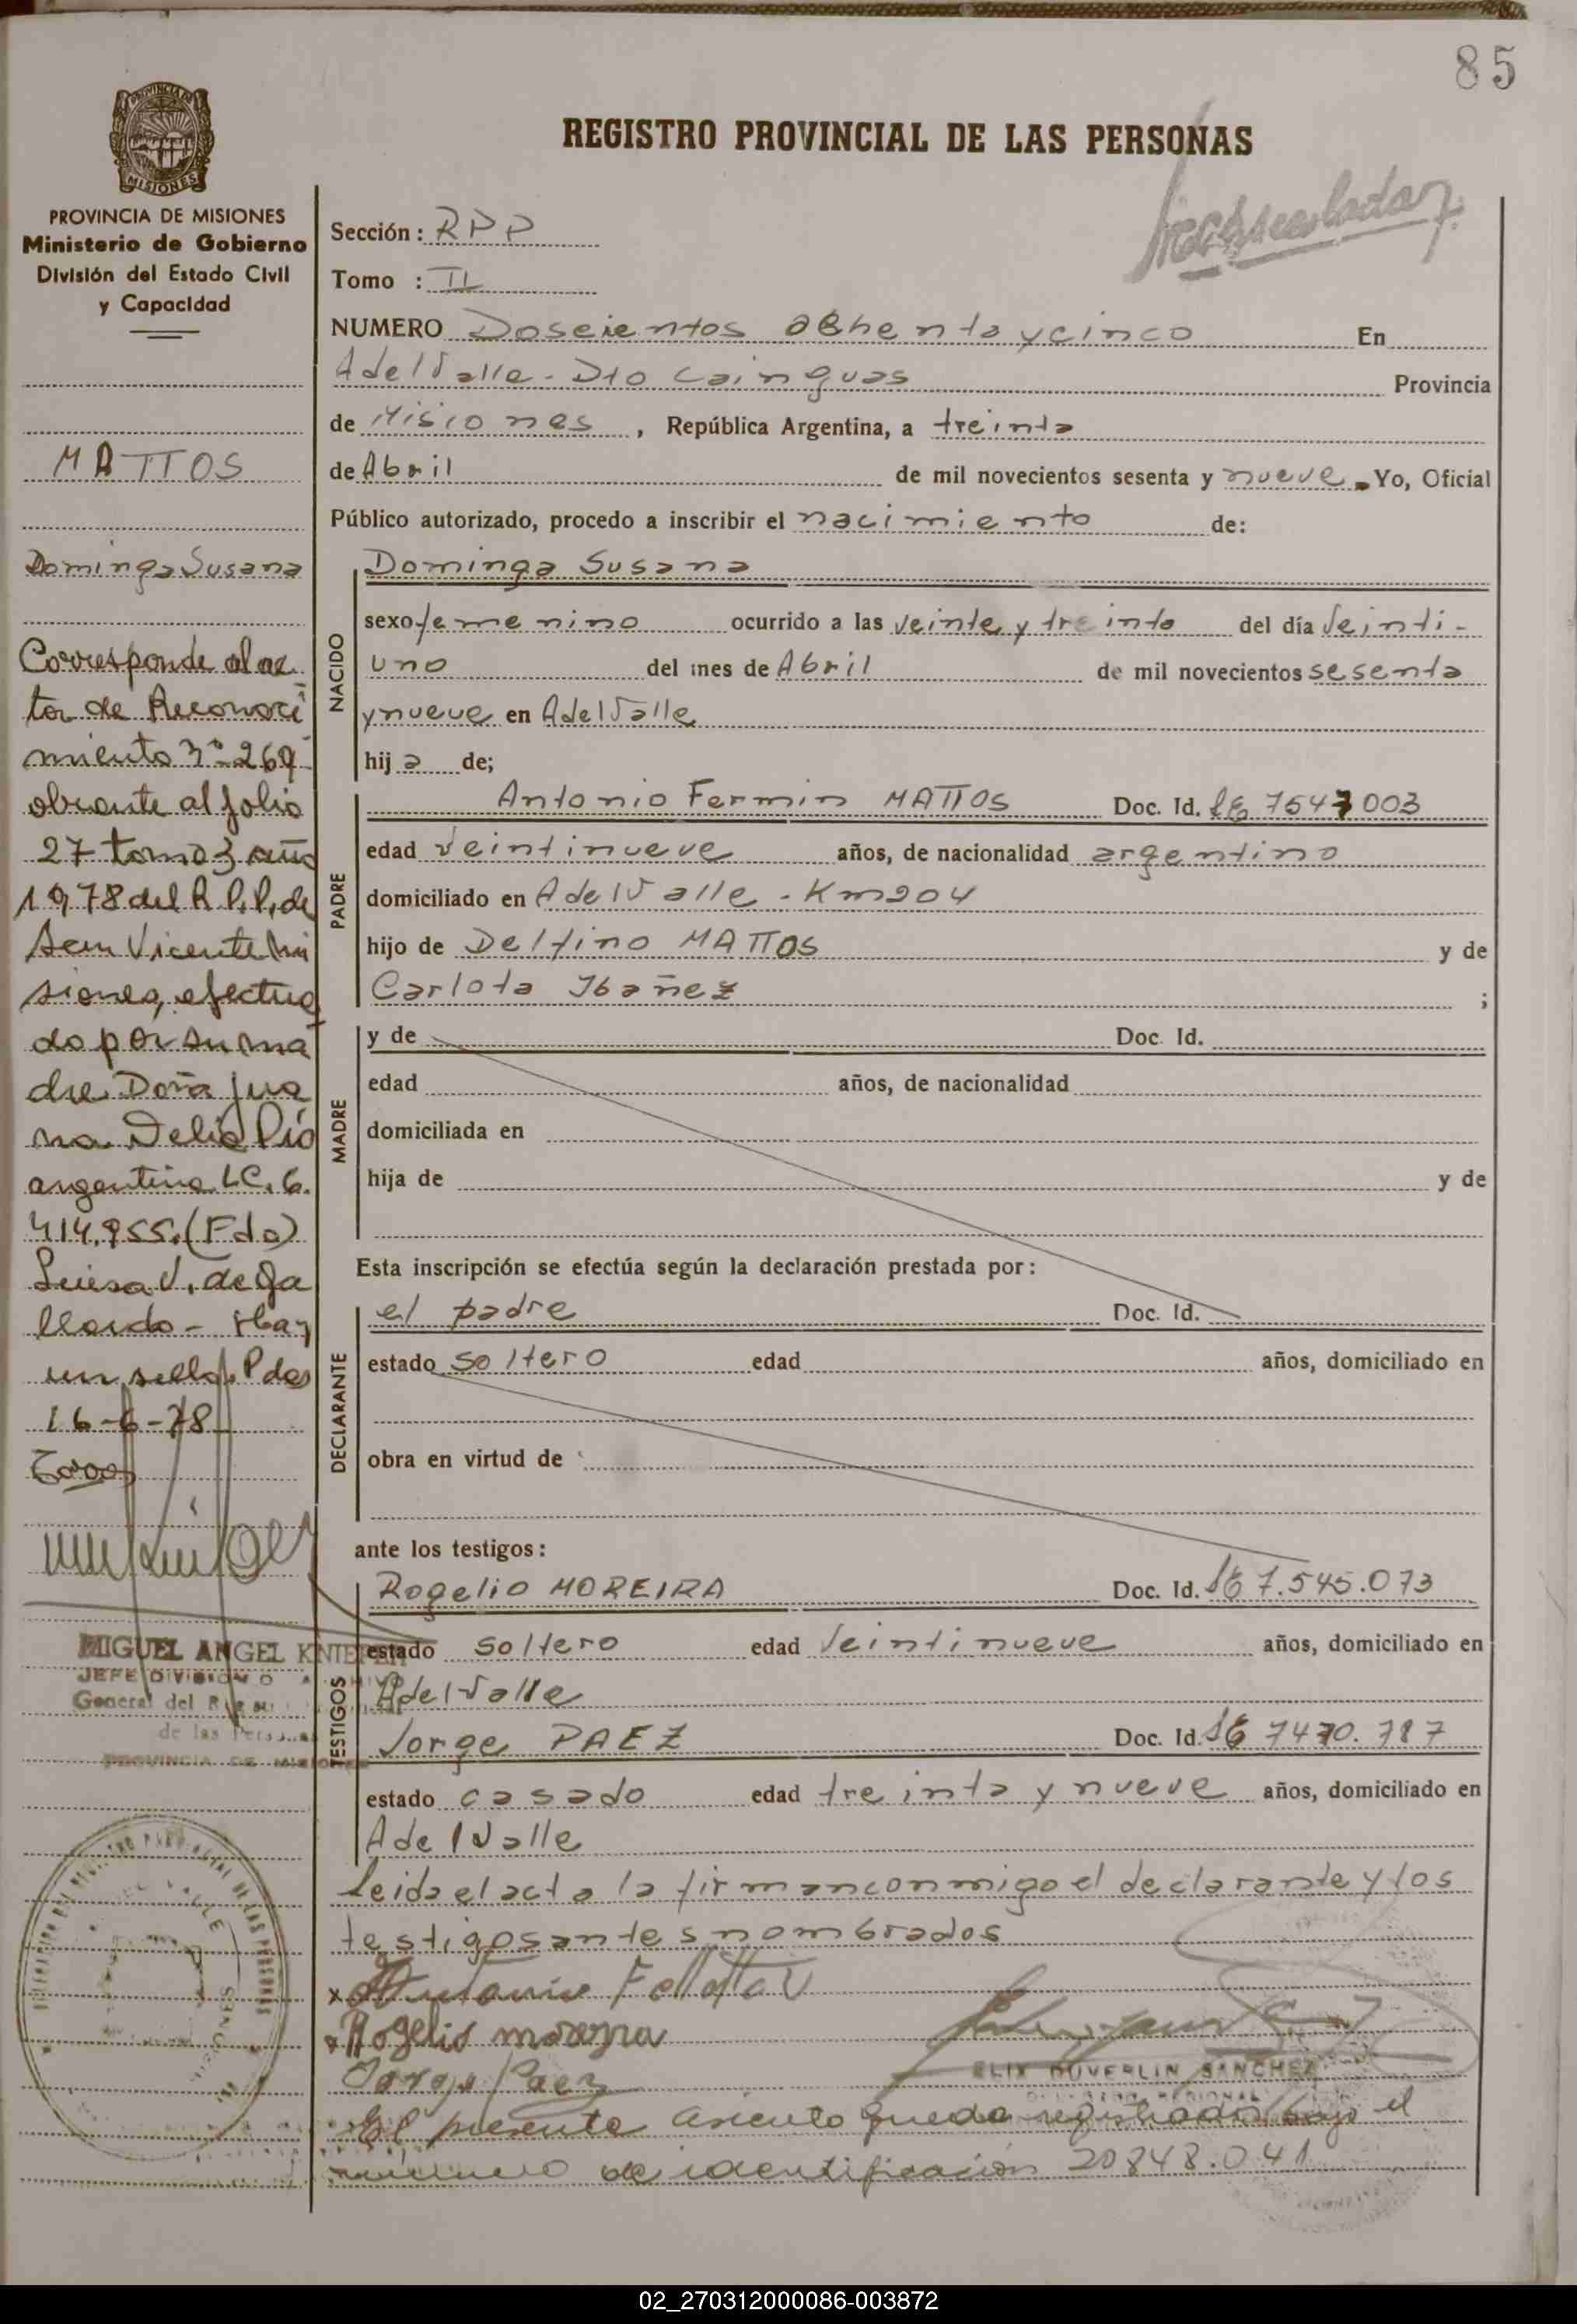 85
REGISTRO PROVINCIAL DE LAS PERSONAS
PROVINCIA DE
MISIONES
PROVINCIA DE MISIONES
Ministerio de Gobierno
División del Estado Civil
y Capacidad
MATTOS
Dominga Susana
Corresponde al ac
ta de Reconoci
miento Nº 269
obrante al folio
27 tomo 3 año
1978 del R.P.P. de
San Vicente Mi
siones, efectua
do por su ma
dre Doña Jua
na Delia Pio
argentina L.C. 6.
414.955. (Fdo)
Luisa V. de Ga
llardo - Hay
un sello. Pdas
16-6-78
MIGUEL ANGEL KNIEPER
JEFE DIVISION
General del
de las Personas
PROVINCIA DE MISIONES
Sección: RPP
Tomo : II
NUMERO Doscientos ochenta y cinco En
A del Valle - Dto Cainguas Provincia
de Misiones, República Argentina, a treinta
de Abril de mil novecientos sesenta y nueve. Yo, Oficial
Público autorizado, procedo a inscribir el nacimiento de:
NACIDO
Dominga Susana
sexo femenino ocurrido a las veinte y treinta del día Veinti-
uno del mes de Abril de mil novecientos sesenta
y nueve en A del Valle
hij a de;
PADRE
Antonio Fermin MATTOS Doc. Id. LE 7547003
edad Veintinueve años, de nacionalidad argentino
domiciliado en A del Valle - Km 204
hijo de Delfino MATTOS y de
Carlota Ibañez ;
MADRE
y de Doc. Id.
edad años, de nacionalidad
domiciliada en
hija de y de
Esta inscripción se efectúa según la declaración prestada por:
DECLARANTE
el padre Doc. Id.
estado soltero edad años, domiciliado en
obra en virtud de
ante los testigos:
TESTIGOS
Rogelio MOREIRA Doc. Id. LE 7.545.073
estado soltero edad Veintinueve años, domiciliado en
A del Valle
Jorge PAEZ Doc. Id. LE 7470.787
estado casado edad treinta y nueve años, domiciliado en
A del Valle
Leida el acta la firman conmigo el declarante y los
testigos antes nombrados
x Antonio F Mattos
x Rogelio moreyra
Jorge Paez
ELIX DUVERLIN SANCHEZ
REGIONAL
El presente asiento queda registrado bajo el
número de identificación 20848.041
02_270312000086-003872